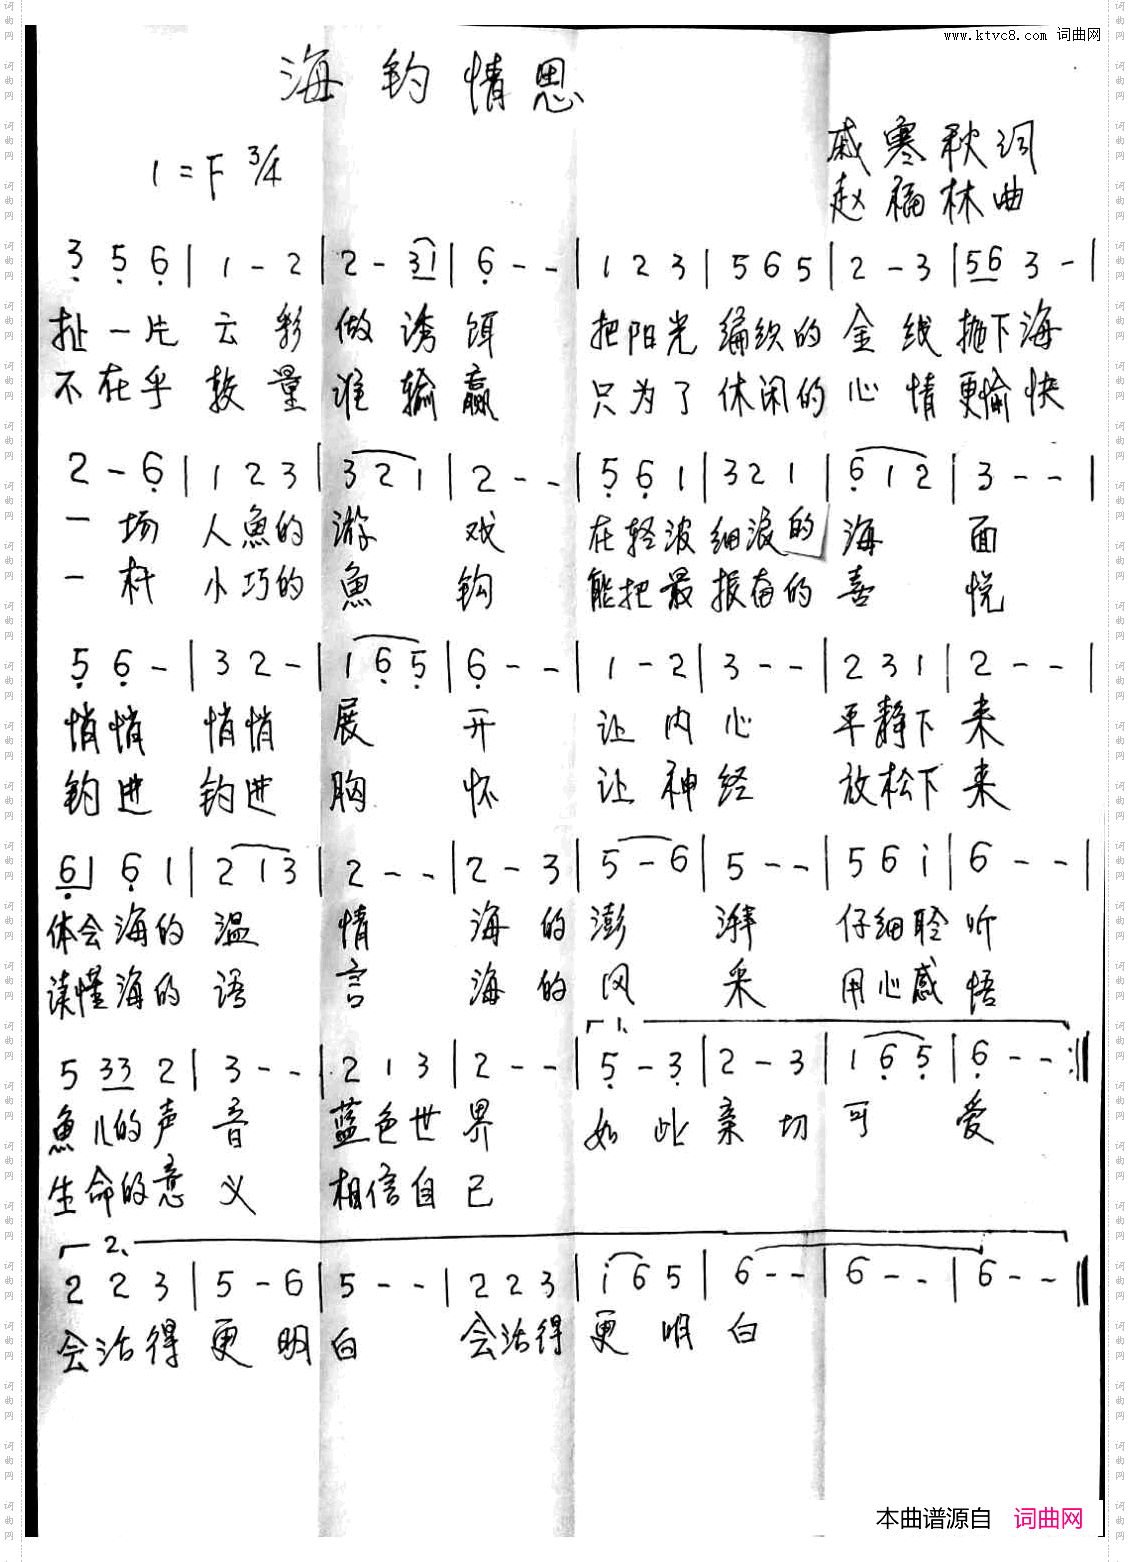 www.ktvc8.com 词曲网
海钓情思
戚寒秋词
1=F 3/4
赵福林曲
3 5 6 | 1 - 2 | 2 - 31 | 6 - - | 1 2 3 | 5 6 5 | 2 - 3 | 56 3 - |
扯一片 云彩 做诱饵 把阳光 编织的 金线 抛下海
不在乎 较量 谁输赢 只为了 休闲的 心情 更愉快
2 - 6 | 1 2 3 | 3 2 1 | 2 - - | 5 6 1 | 3 2 1 | 6 1 2 | 3 - - |
一场 人魚的 游戏 在轻波 细浪的 海面
一杆 小巧的 魚钩 能把最 振奋的 喜悦
5 6 - | 3 2 - | 1 6 5 | 6 - - | 1 - 2 | 3 - - | 2 3 1 | 2 - - |
悄悄 悄悄 展开 让内心 平静下来
钓进 钓进 胸怀 让神经 放松下来
61 6 1 | 2 1 3 | 2 - - | 2 - 3 | 5 - 6 | 5 - - | 5 6 i | 6 - - |
体会海的 温情 海的 澎湃 仔细聆听
读懂海的 语言 海的 风采 用心感悟
1.
5 33 2 | 3 - - | 2 1 3 | 2 - - | 5 - 3 | 2 - 3 | 1 6 5 | 6 - - :||
魚儿的声音 蓝色世界 如此亲切可爱
生命的意义 相信自己
2.
2 2 3 | 5 - 6 | 5 - - | 2 2 3 | i 6 5 | 6 - - | 6 - - | 6 - - ||
会活得 更明白 会活得 更明白
本曲谱源自 词曲网